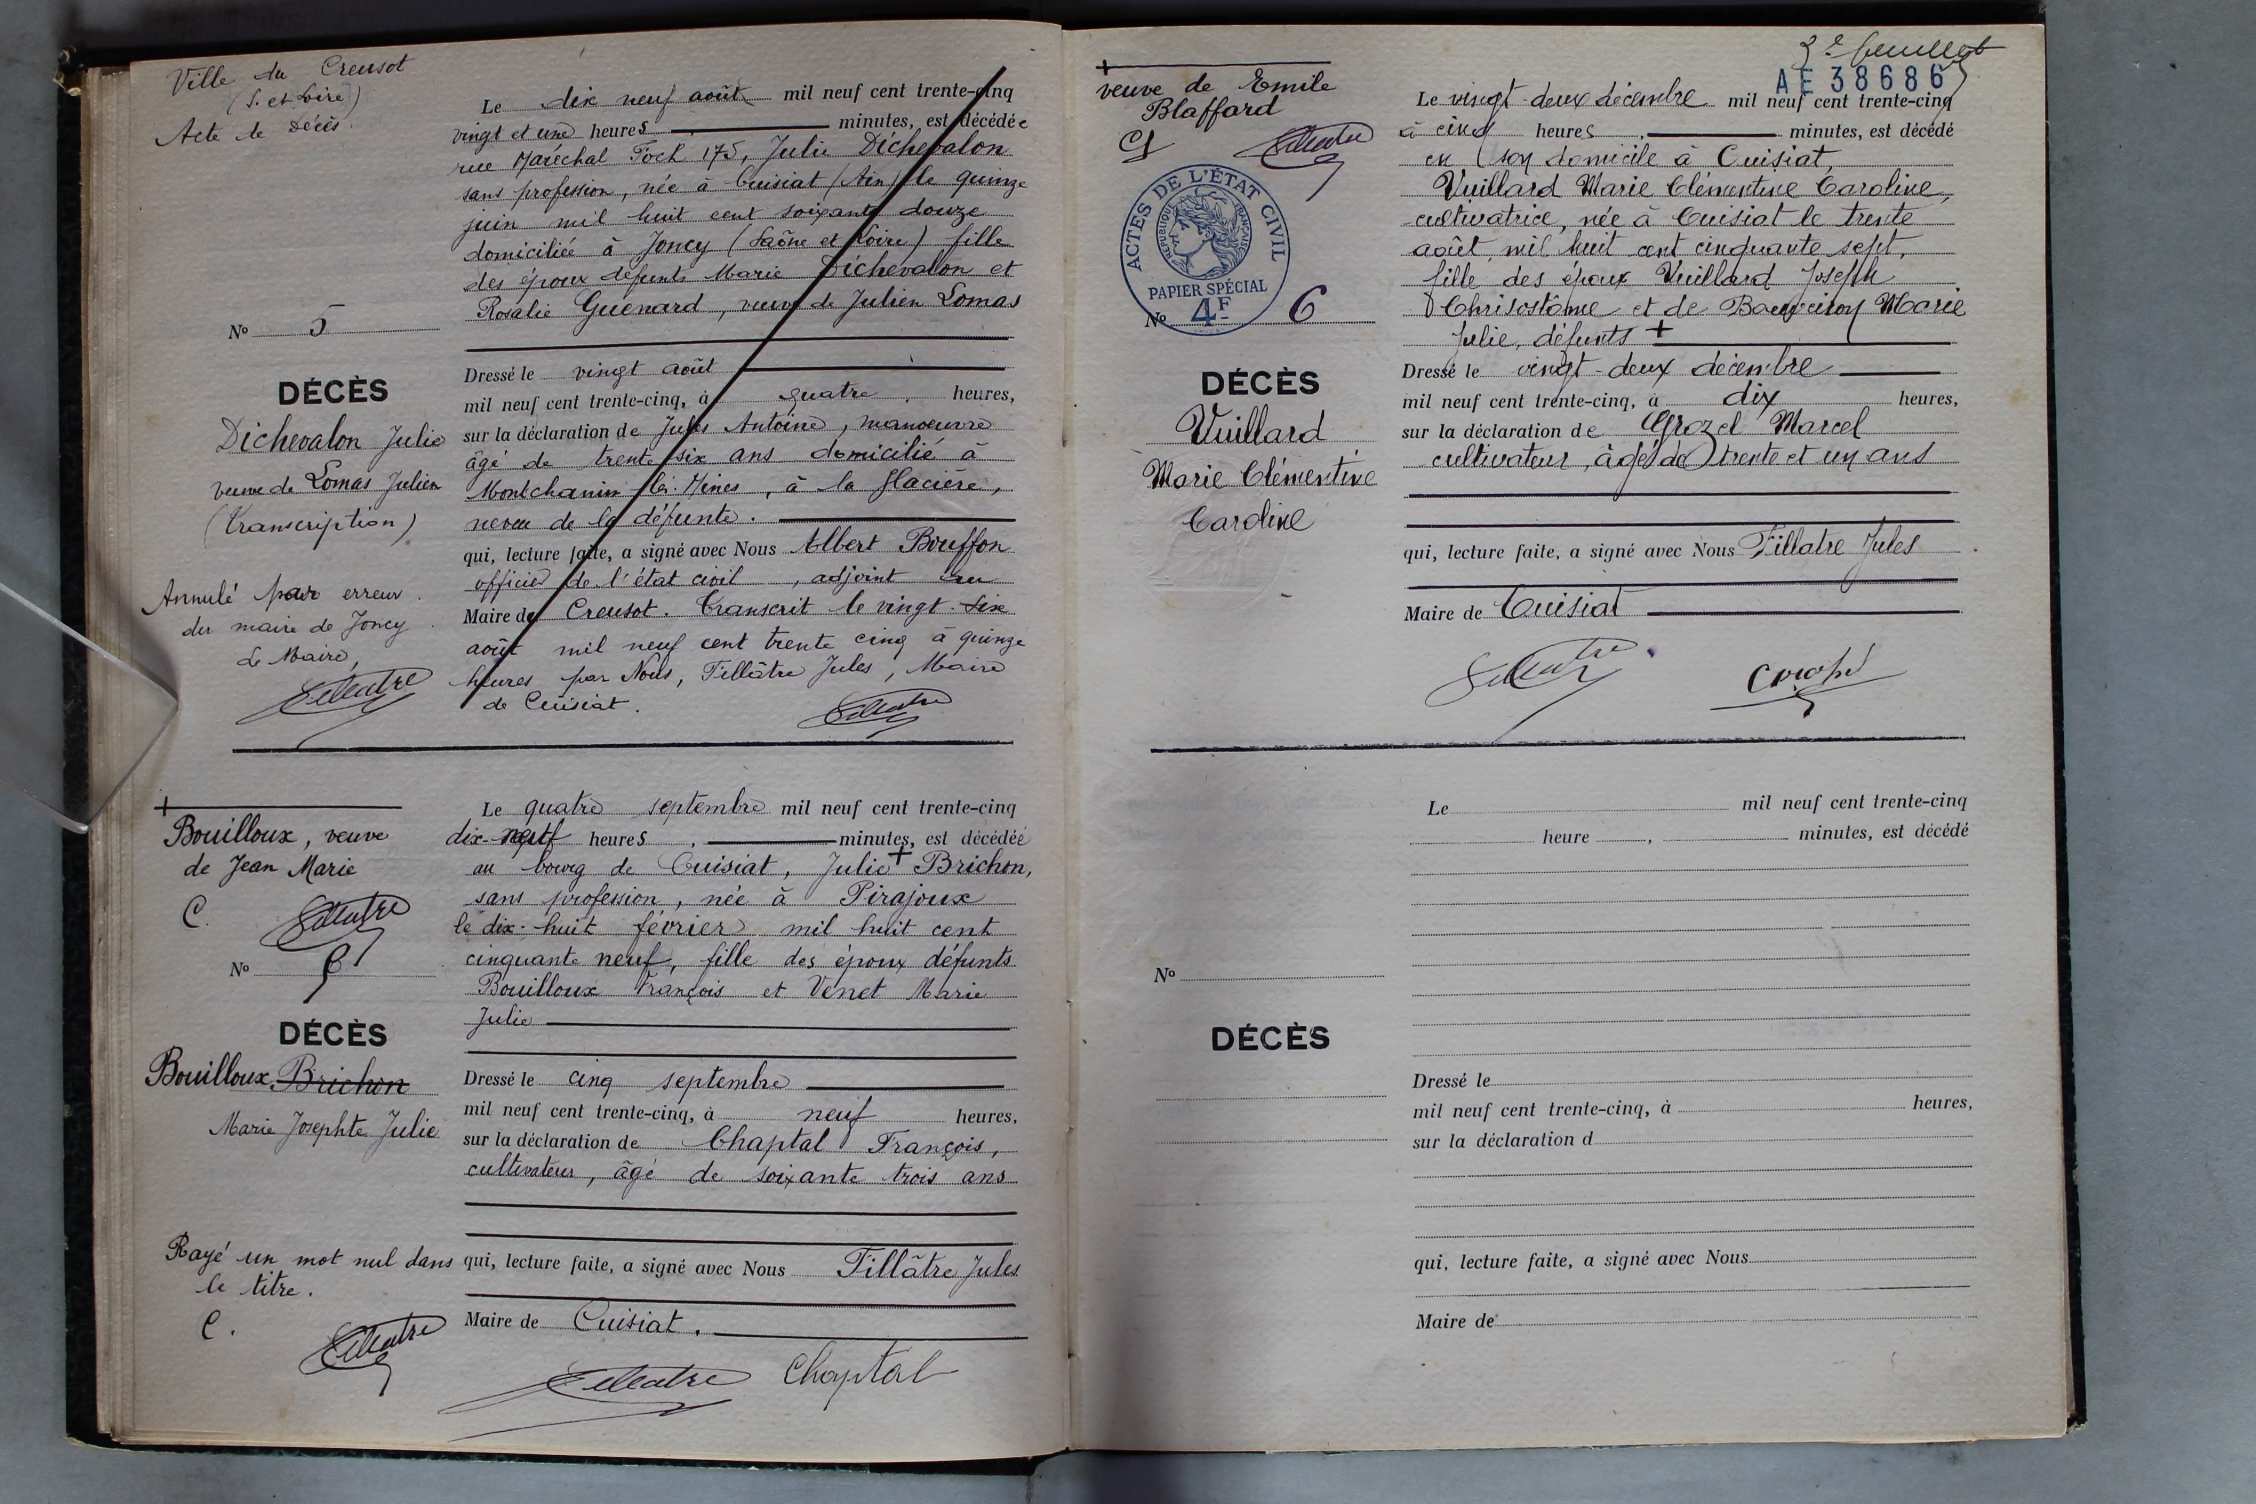 Ville du Creusot
(S. et Loire)
Acte de Décès.
Le dix neuf août mil neuf cent trente-cinq
vingt et une heures , minutes, est décédée
rue Maréchal Foch 175, Julie Dichevalon
sans profession, née à Cuisiat (Ain) le quinze
juin mil huit cent soixante douze
domiciliée à Joncy (Saône et Loire) fille
des époux défunts Marie Dichevalon et
Rosalie Guénard, veuve de Julien Lomas
No 5
DÉCÈS
Dichevalon Julie
veuve de Lomas Julien
(transcription)
Annulé par erreur
du maire de Joncy.
Le Maire,
Fillatre
Dressé le vingt août
mil neuf cent trente-cinq, à quatre heures,
sur la déclaration de Jules Antoine, manoeuvre
âgé de trente six ans domicilié à
Montchanin les Mines, à la Glacière,
neveu de la défunte.
qui, lecture faite, a signé avec Nous Albert Bouffon
officier de l'état civil, adjoint au
Maire de Creusot. Transcrit le vingt-six
août mil neuf cent trente cinq à quinze
heures par Nous, Fillâtre Jules, Maire
de Cuisiat.
Fillatre
+
Bouilloux, veuve
de Jean Marie
C.
Fillatre
No 5
DÉCÈS
Bouilloux Brichon
Marie Josephte Julie
Rayé un mot nul dans
le titre.
C.
Fillatre
Le quatre septembre mil neuf cent trente-cinq
dix-neuf heures , minutes, est décédée
au bourg de Cuisiat, Julie + Brichon,
sans profession, née à Pirajoux
le dix-huit février mil huit cent
cinquante neuf, fille des époux défunts
Bouilloux François et Venet Marie
Julie
Dressé le cinq septembre
mil neuf cent trente-cinq, à neuf heures,
sur la déclaration de Chaptal François,
cultivateur, âgé de soixante trois ans
qui, lecture faite, a signé avec Nous Fillâtre Jules
Maire de Cuisiat.
Fillatre Chaptal
3e feuillet
AE 38686
+
veuve de Emile
Blaffard
Fillatre
ACTES DE L'ÉTAT CIVIL
REPUBLIQUE FRANÇAISE
PAPIER SPÉCIAL
4F
No 6
DÉCÈS
Vuillard
Marie Clémentine
Caroline
Le vingt-deux décembre mil neuf cent trente-cinq
à cinq heures , minutes, est décédé
en son domicile à Cuisiat,
Vuillard Marie Clémentine Caroline,
cultivatrice, née à Cuisiat le trente
août, mil huit cent cinquante sept,
fille des époux Vuillard Joseph
Chrisostôme et de Marie
Julie, défunts +
Dressé le vingt-deux décembre
mil neuf cent trente-cinq, à dix heures,
sur la déclaration de Grozel Marcel
cultivateur, âgé de trente et un ans
qui, lecture faite, a signé avec Nous Fillatre Jules
Maire de Cuisiat
Fillatre
Le mil neuf cent trente-cinq
heure , minutes, est décédé
No
DÉCÈS
Dressé le
mil neuf cent trente-cinq, à heures,
sur la déclaration d
qui, lecture faite, a signé avec Nous
Maire de